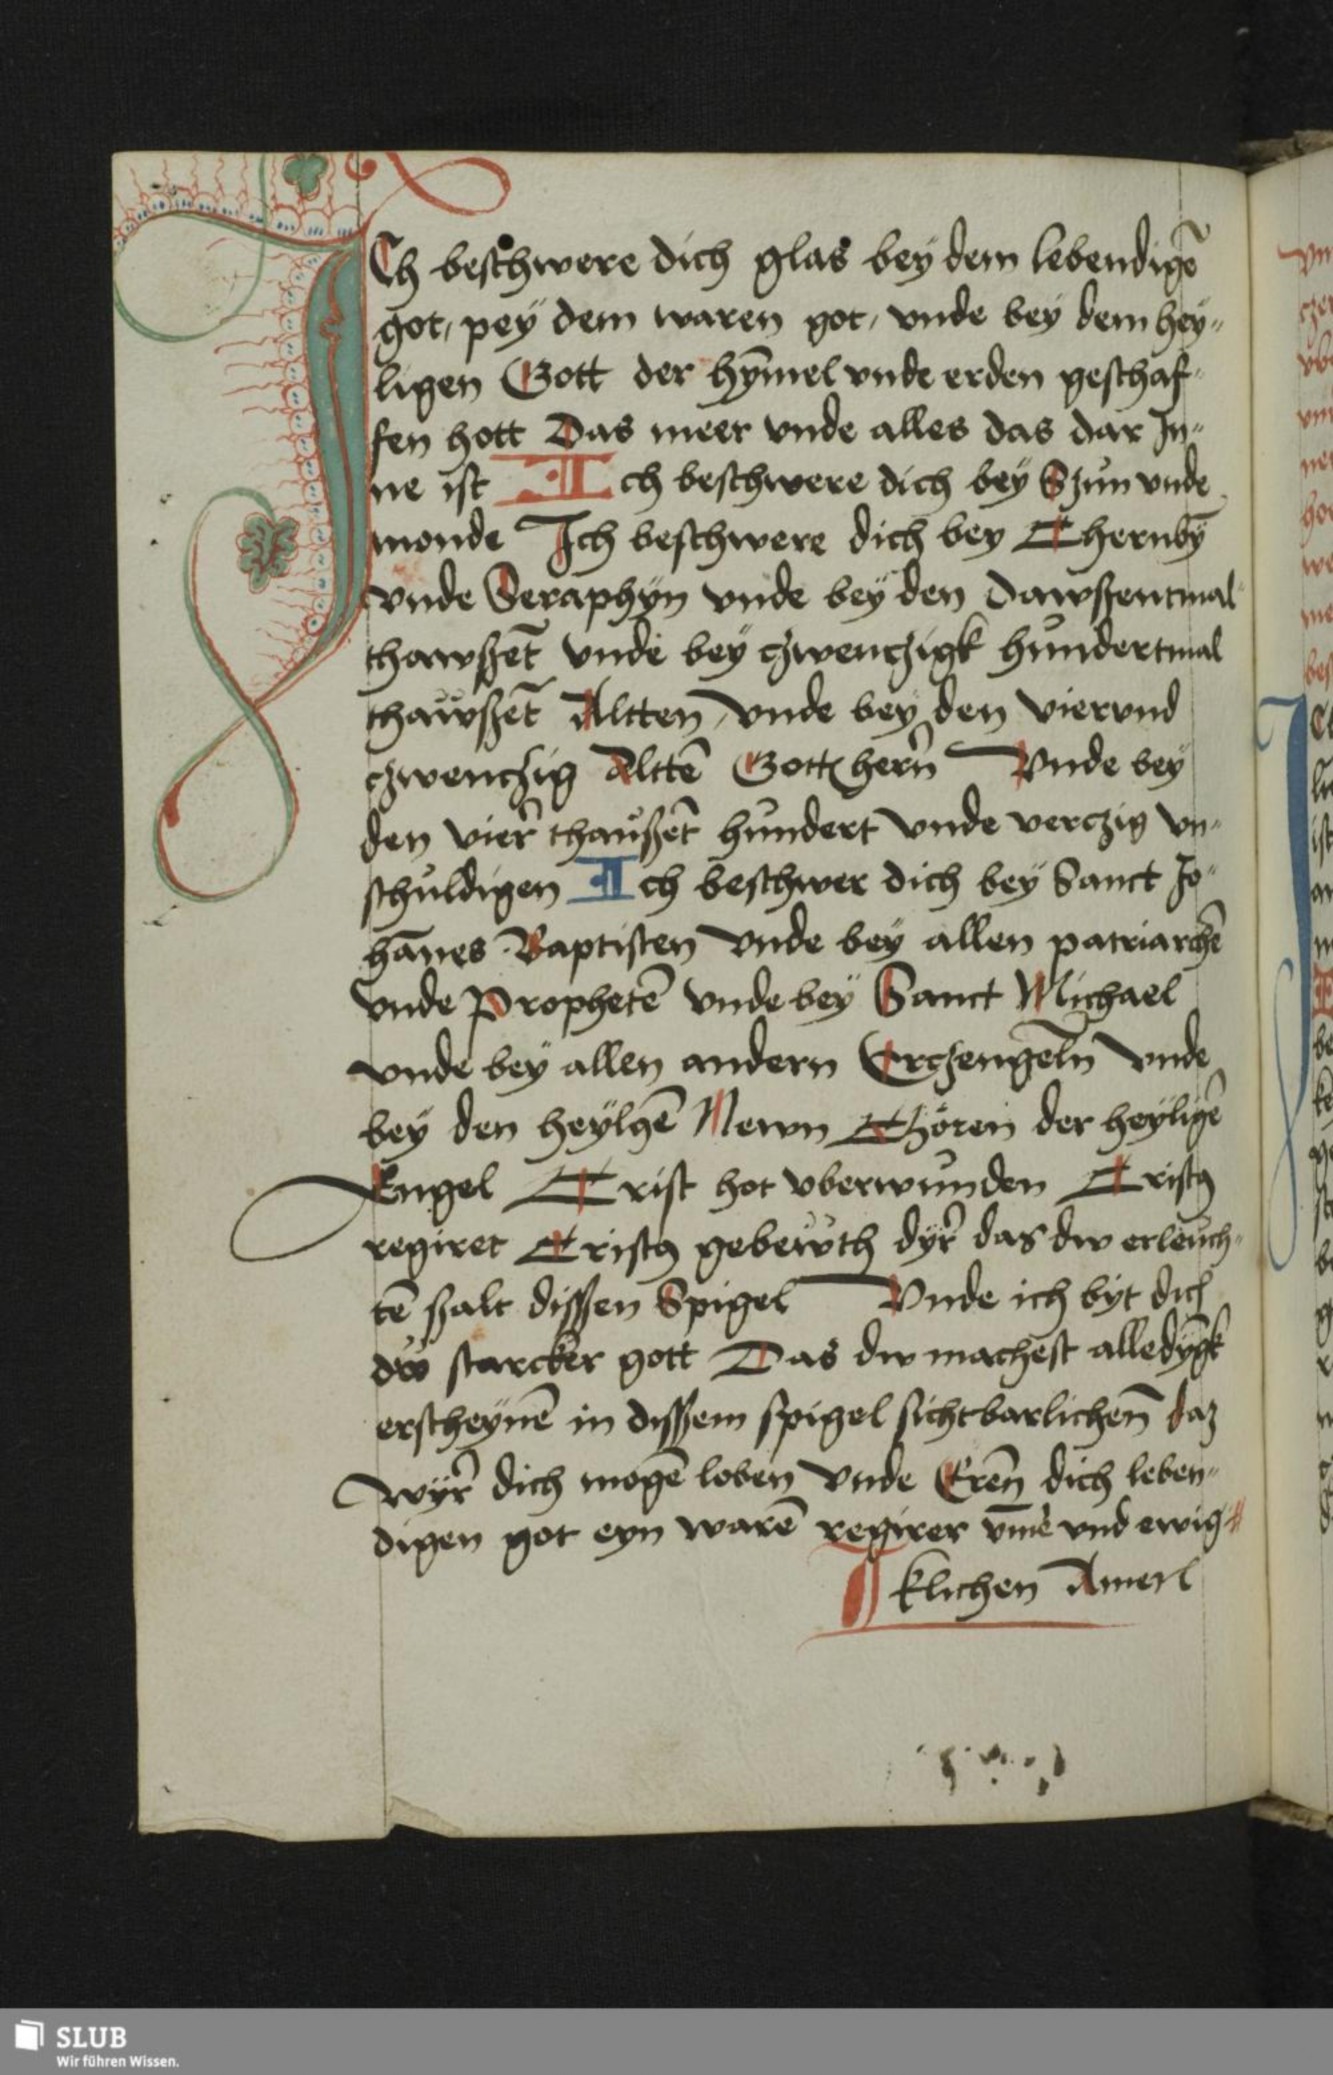 ICh beschwere dich glas bey dem lebendigē
got, pey dem waren got, vnde bey dem hey„
ligen Gott der hȳmel vnde erden geschaf„
fen hott Das meer vnde alles das dar In„
ne ist Ich beschwere dich bey Szun vnde
monde Ich beschwere dich bey Cherubȳ
vnde Seraphyn vnde bey den Dawszentmal„
thawszēt vnde bey czwenczigk hundertmal
thawszēt Altten, vnde bey den viervnd
czwenczig Alttē Gott hern̄ Vnde bey
den vier thauszēt hundert vnde verczig vn„
schuldigen Ich beschwer dich bey Sanct Jo„
hānes Baptisten vnde bey allen patriarchē
vnde Prophetē vnde bey Sanct Michael
vnde bey allen andern Erczengeln̄ vnde
bey den heylgē Newn Chören der heyligē
Engel Crist hot vberwunden Cristq
regiret Cristq gebewth dyr das dw erleuch„
tē szalt disszen Spigel Vnde ich byt dich
dw starcker gott Das dw machest alledȳgk
erscheynē in disszem spigel sichtbarlichen̄ daz
wyr dich mogē loben vnde Eren̄ dich leben„
digen got eyn warē regirer vm̄e vnd ewig„
klichen Amen
SLUB
Wir führen Wissen.